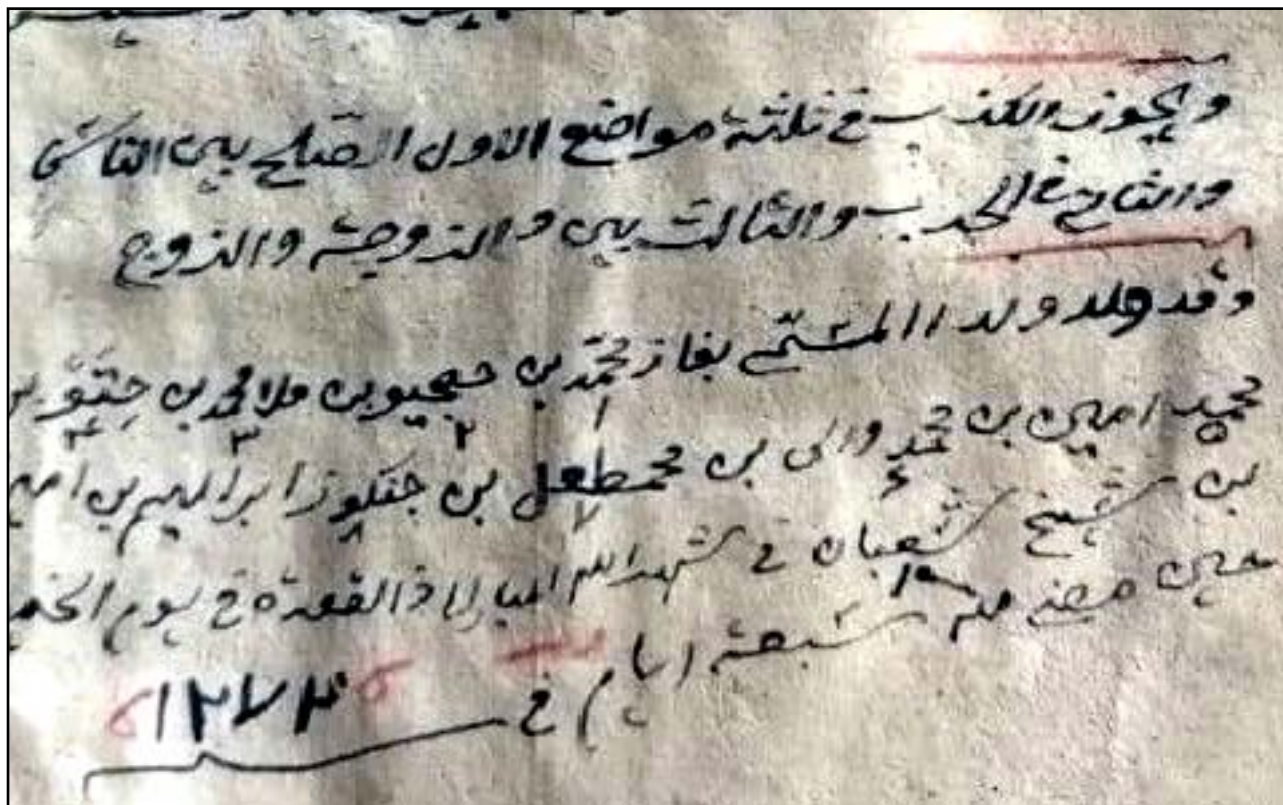 ويجوز الكذب في ثلثة مواضع الاول الصلح بين الناس
والثاني في الحرب والثالث بين الزوجة والزوج
وقد ولد ولد المسمى بغاز محمد بن بن ملا محمد بن
محمد امين بن محمد والى بن بن ابراهيم بن
بن شيخ شعبان في شهر الله المبارك ذالقعدة في يوم
حين مضى منه سبعة ايام في
١٢٧٣